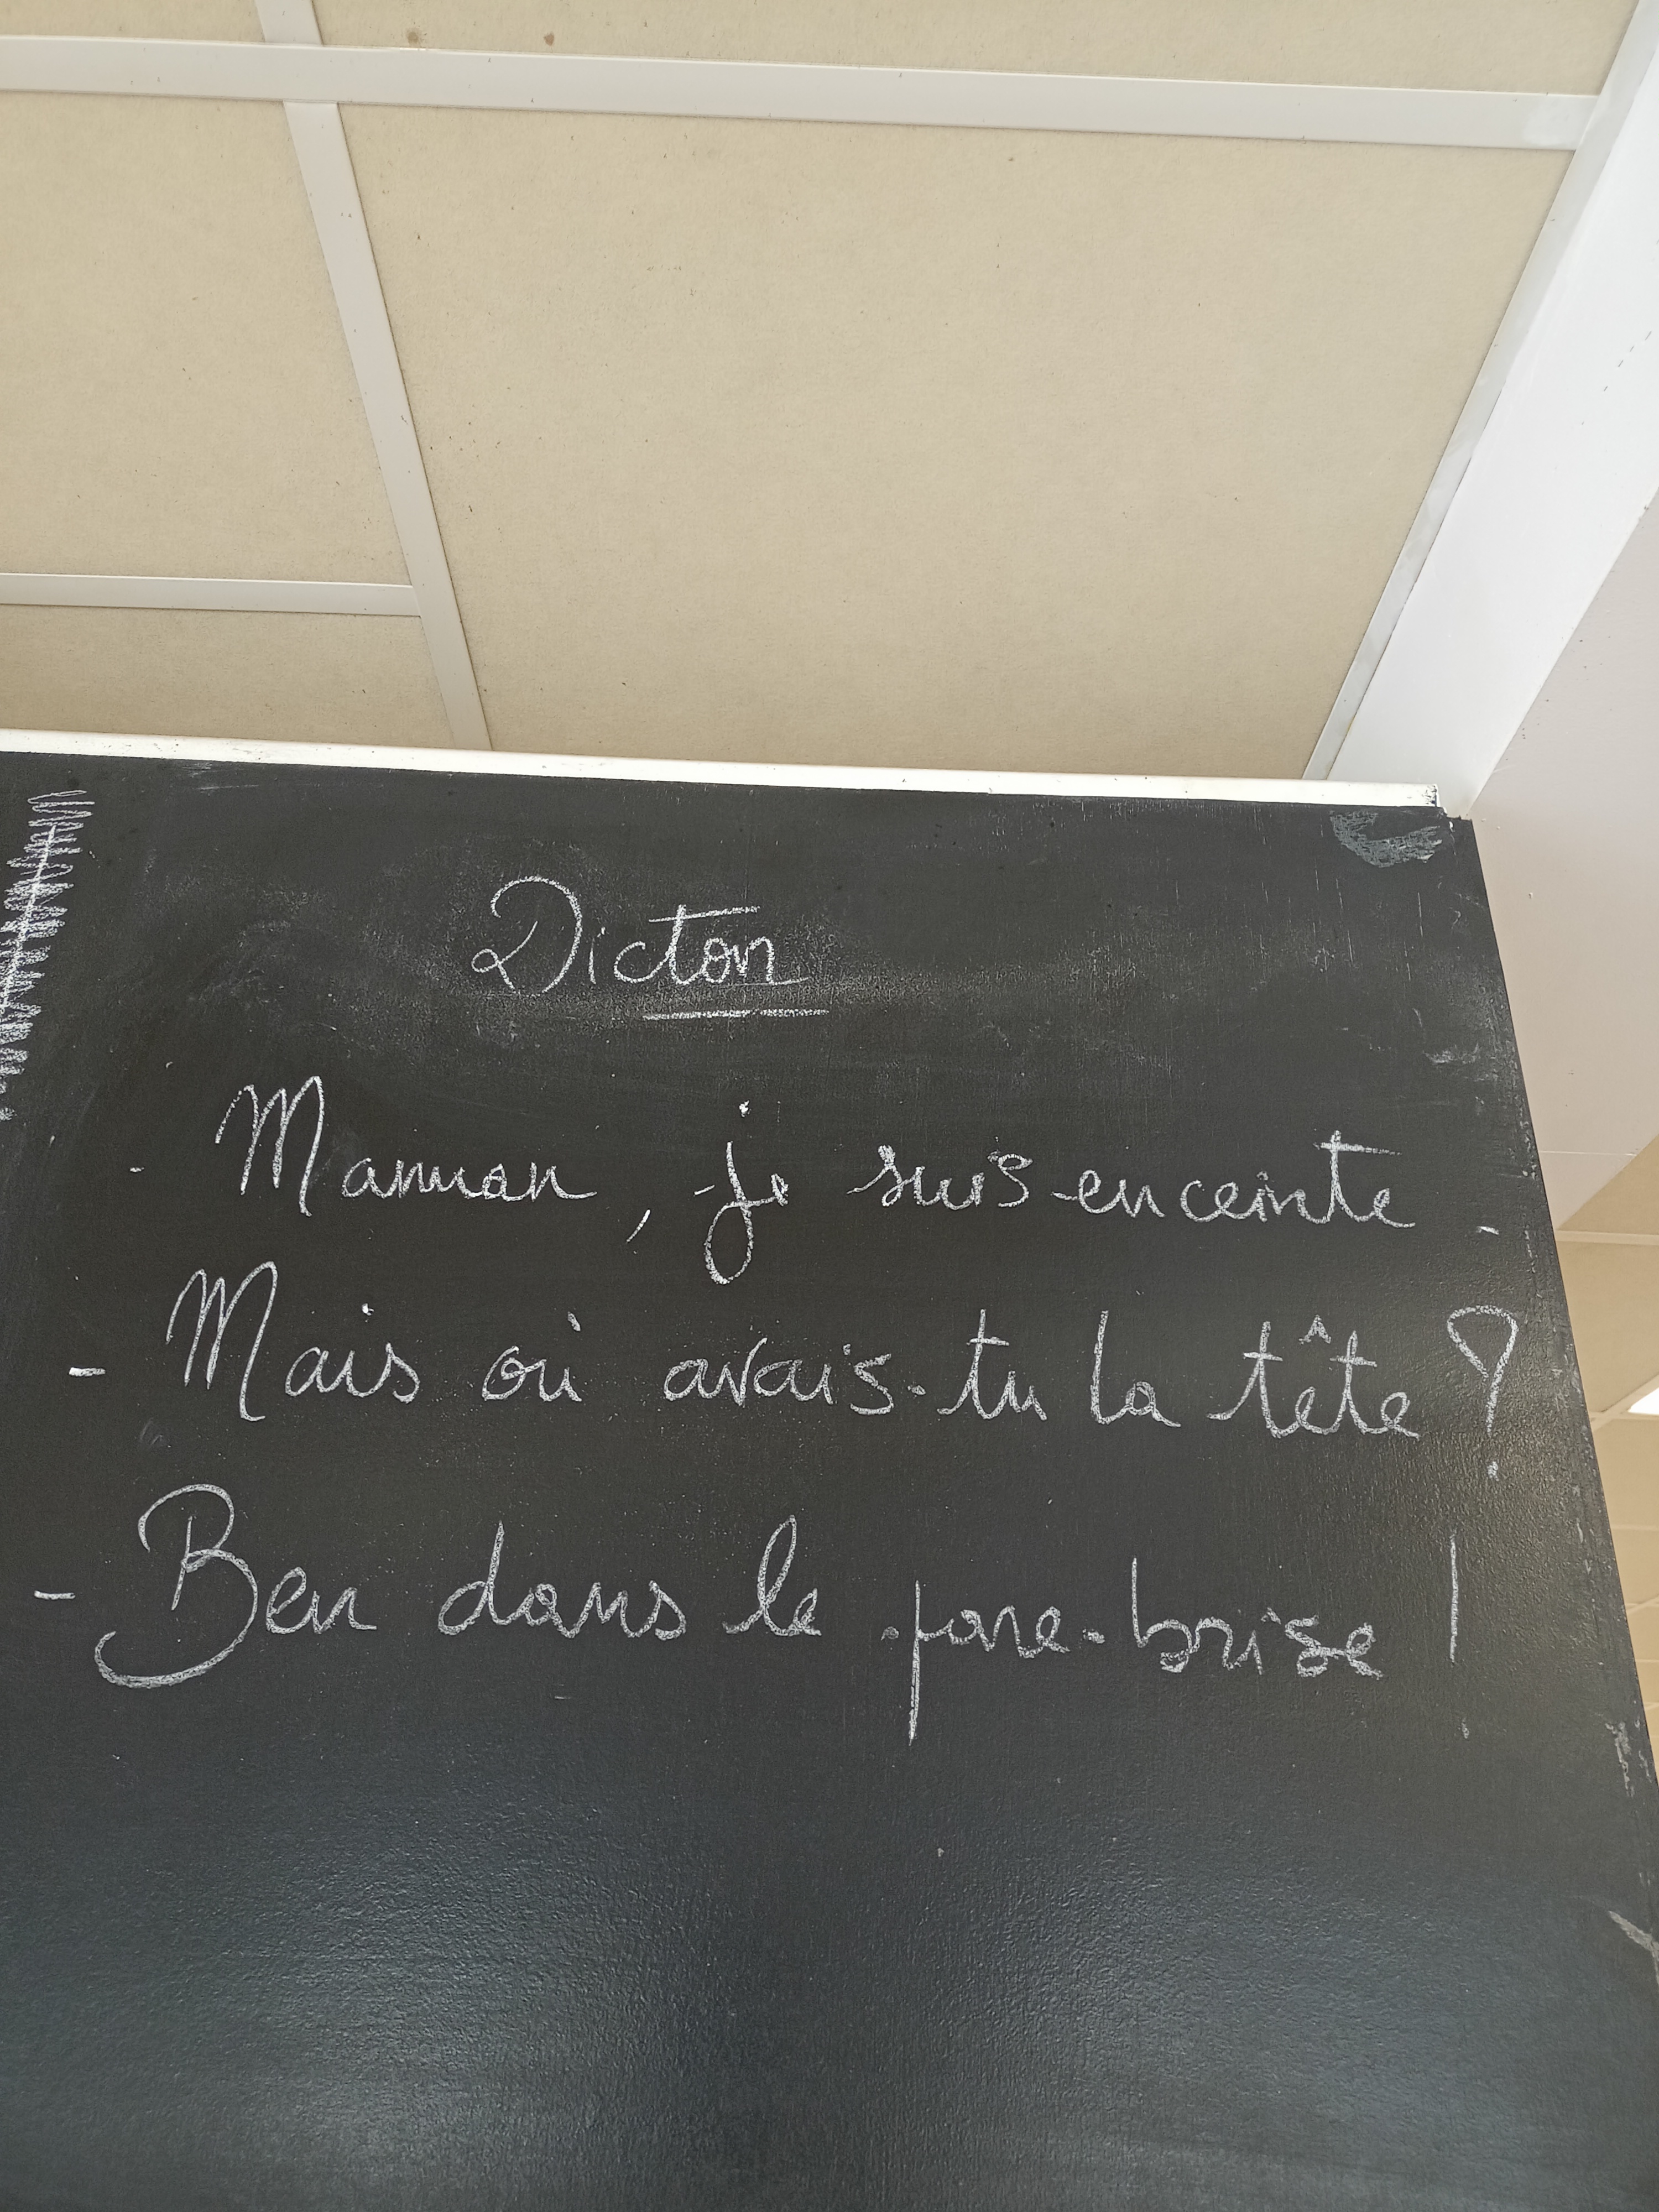 Dicton
- Maman, je suis enceinte.
- Mais où avais-tu la tête ?
- Ben dans le pare-brise !